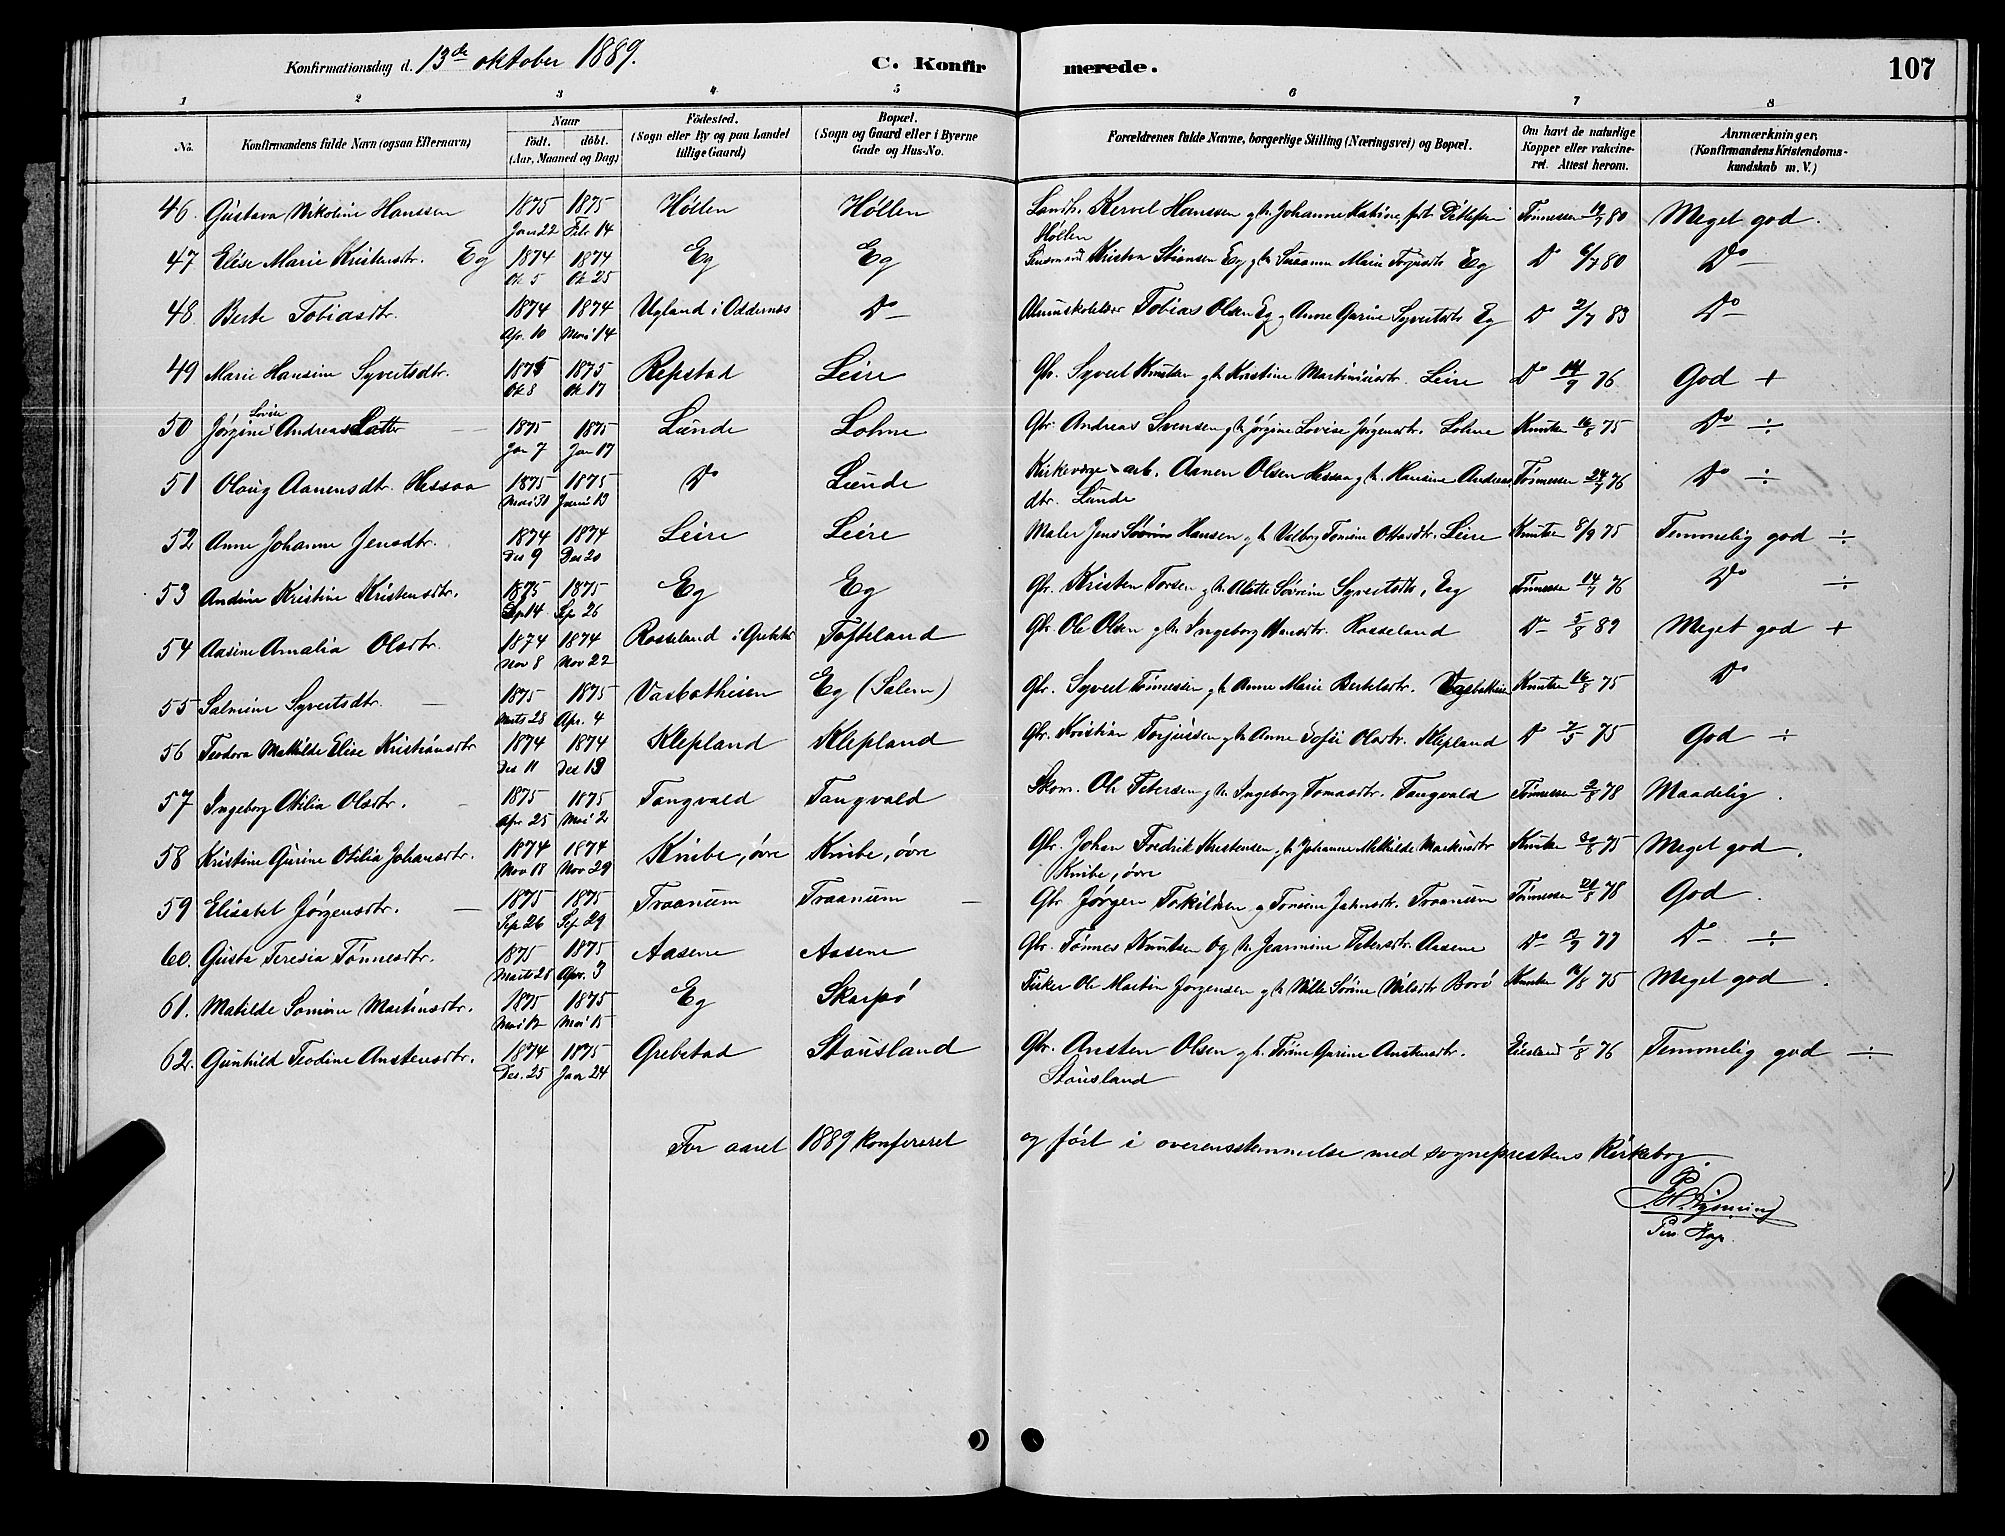 Konfirmationsdag d. 13de oktober 1889. C. Konfirmerede. 107
1 2 3 4 5 6 7 8
No. Konfirmandens fulde Navn (ogsaa Efternavn) Naar født. døbt. (Aar, Maaned og Dag) Fødested. (Sogn eller By og paa Landet tillige Gaard) Bopæl. (Sogn og Gaard eller i Byerne Gade og Hus-No. Forældrenes fulde Navne, borgerlige Stilling (Næringsvei) og Bopæl. Om havt de naturlige Kopper eller vakcineret. Attest herom. Anmærkninger, (Konfirmandens Kristendomskundskab m. V.)
46. Gustava Nikoline Hanssen 1875 Jan 22 1875 Febr 14 Høllen Høllen Landh. Kervel Hanssen g h. Johanne Katrine, født Ditlefsen Høllen Tønnessen 19/7 80 Meget god.
47 Elise Marie Kristensdtr. Eg 1874 Ok 5 1874 Ok 25 Eg Eg Lensmand Kristen Stiansen Eg g h. Susanne Marie Torjusdtr Eg Do 6/7 80 Do
48. Berte Tobiasdtr. 1874 Apr. 10 1874 Mai 14 Ugland i Oddernes Do Almuskolelær Tobias Olsen Eg g Anne Gurine Syvertsdtr Eg Do 2/7 83 Do
49 Marie Hansine Syvertsdtr. 1875 Ok 8 1875 Ok 17 Repstad Leire Gbr. Syvert Knutsen g h Kristine Martiniusdtr. Leire Do 14/7 76 God +
50 Jørgine Lovise Andreasdatter 1875 Jan 7 1875 Jan 17 Lunde Lohne Gbr. Andreas Svensen g h Jørgine Lovise Jørgensdtr. Lohne Knutsen 16/8 75 Do ÷
51 Olaug Aanensdtr. Hessaa 1875 Mai 31 1875 Juni 13 Do Lunde Kirkeværge arb. Aanen Olsen Hessaa g h. Hansine Andreasdtr. Lunde Tønnessen 24/7 76 Do ÷
52 Anne Johanne Jensdtr. 1874 Des 9 1874 Des 20 Leire Leire Maler Jens Sørens Hansen g h Valborg Tomine Ottosdtr. Leire Knutsen 8/9 75 Temmelig god ÷
53 Andine Kristine Kristensdtr. 1875 Sep 14 1875 Sep 26 Eg Eg Gbr. Kristen Torsen g h. Alette Sørine Syvertsdtr, Eg Tønnessen 14/7 76 Do ÷
54 Aasine Amalia Olsdtr. 1874 Nov 8 1874 Nov 22 Rosseland i Grebstd Tofteland Gbr. Ole Olsen g h. Ingeborg Hansdtr. Rosseland Do 5/8 89 Meget god +
55 Salmine Syvertsdtr. 1875 Marts 28 1875 Apr. 4 Vasbotheien Eg (Salem) Gbr. Syvert Tønnessen g h. Anne Marie Bertelsdtr. Vasbotheien Knutsen 16/8 75 Do
56 Teodora Mathilde Elise Kristiansdtr 1874 Des 11 1874 Des 13 Klepland Klepland Gbr. Kristian Torjussen g h Anne Sofie Olsdtr. Klepland Do 7/5 75 God ÷
57 Ingeborg Otilia Olsdtr. 1875 Apr 25 1875 Mai 2 Tangvald Tangvald Skom. Ole Petersen g h. Ingeborg Tomasdtr. Tangvald Tønnessen 2/8 78 Maadelig.
58 Kristine Gurine Otilia Johansdtr. 1874 Nov 18 1874 Nov 29 Knibe, øvre Knibe, øvre Gbr. Johan Fredrik Kristensen, g h Johanne Mathilde Markusdtr Knibe, øvre Knutsen 30/8 75 Meget god.
59 Elisabet Jørgensdtr. 1875 Sep 26 1875 Sep 29 Traanum Traanum Gbr. Jørgen Torkildsen g Tomine Jakobsdtr. Traanum Tønnessen 21/8 78 God.
60. Gusta Teresia Tønnesdtr. 1875 Marts 28 1875 Apr. 3 Aasene Aasene Gbr. Tønnes Knutsen og h. Jearmine Petersdtr. Aasene Do 12/7 77 Do ÷
61. Matilde Tomine Martinsdtr. 1875 Mai 12 1875 Mai 15 Eg Skarpø Fisker Ole Martin Jørgensen g h Nille Sørine Nilsdtr Borø Knutsen 16/8 75 Meget god.
62. Gunhild Teodine Anstensdtr. 1874 Des. 25 1875 Jan 24 Grebstad Stousland Gbr. Ansten Olsen g h. Torine Gurine Anstensdtr. Stousland Eiesland 1/8 76 Temmelig god ÷
For aaret 1889 konfereret og ført i overensstemmelse med sogneprestens Kirkebog.
Per. Kap.